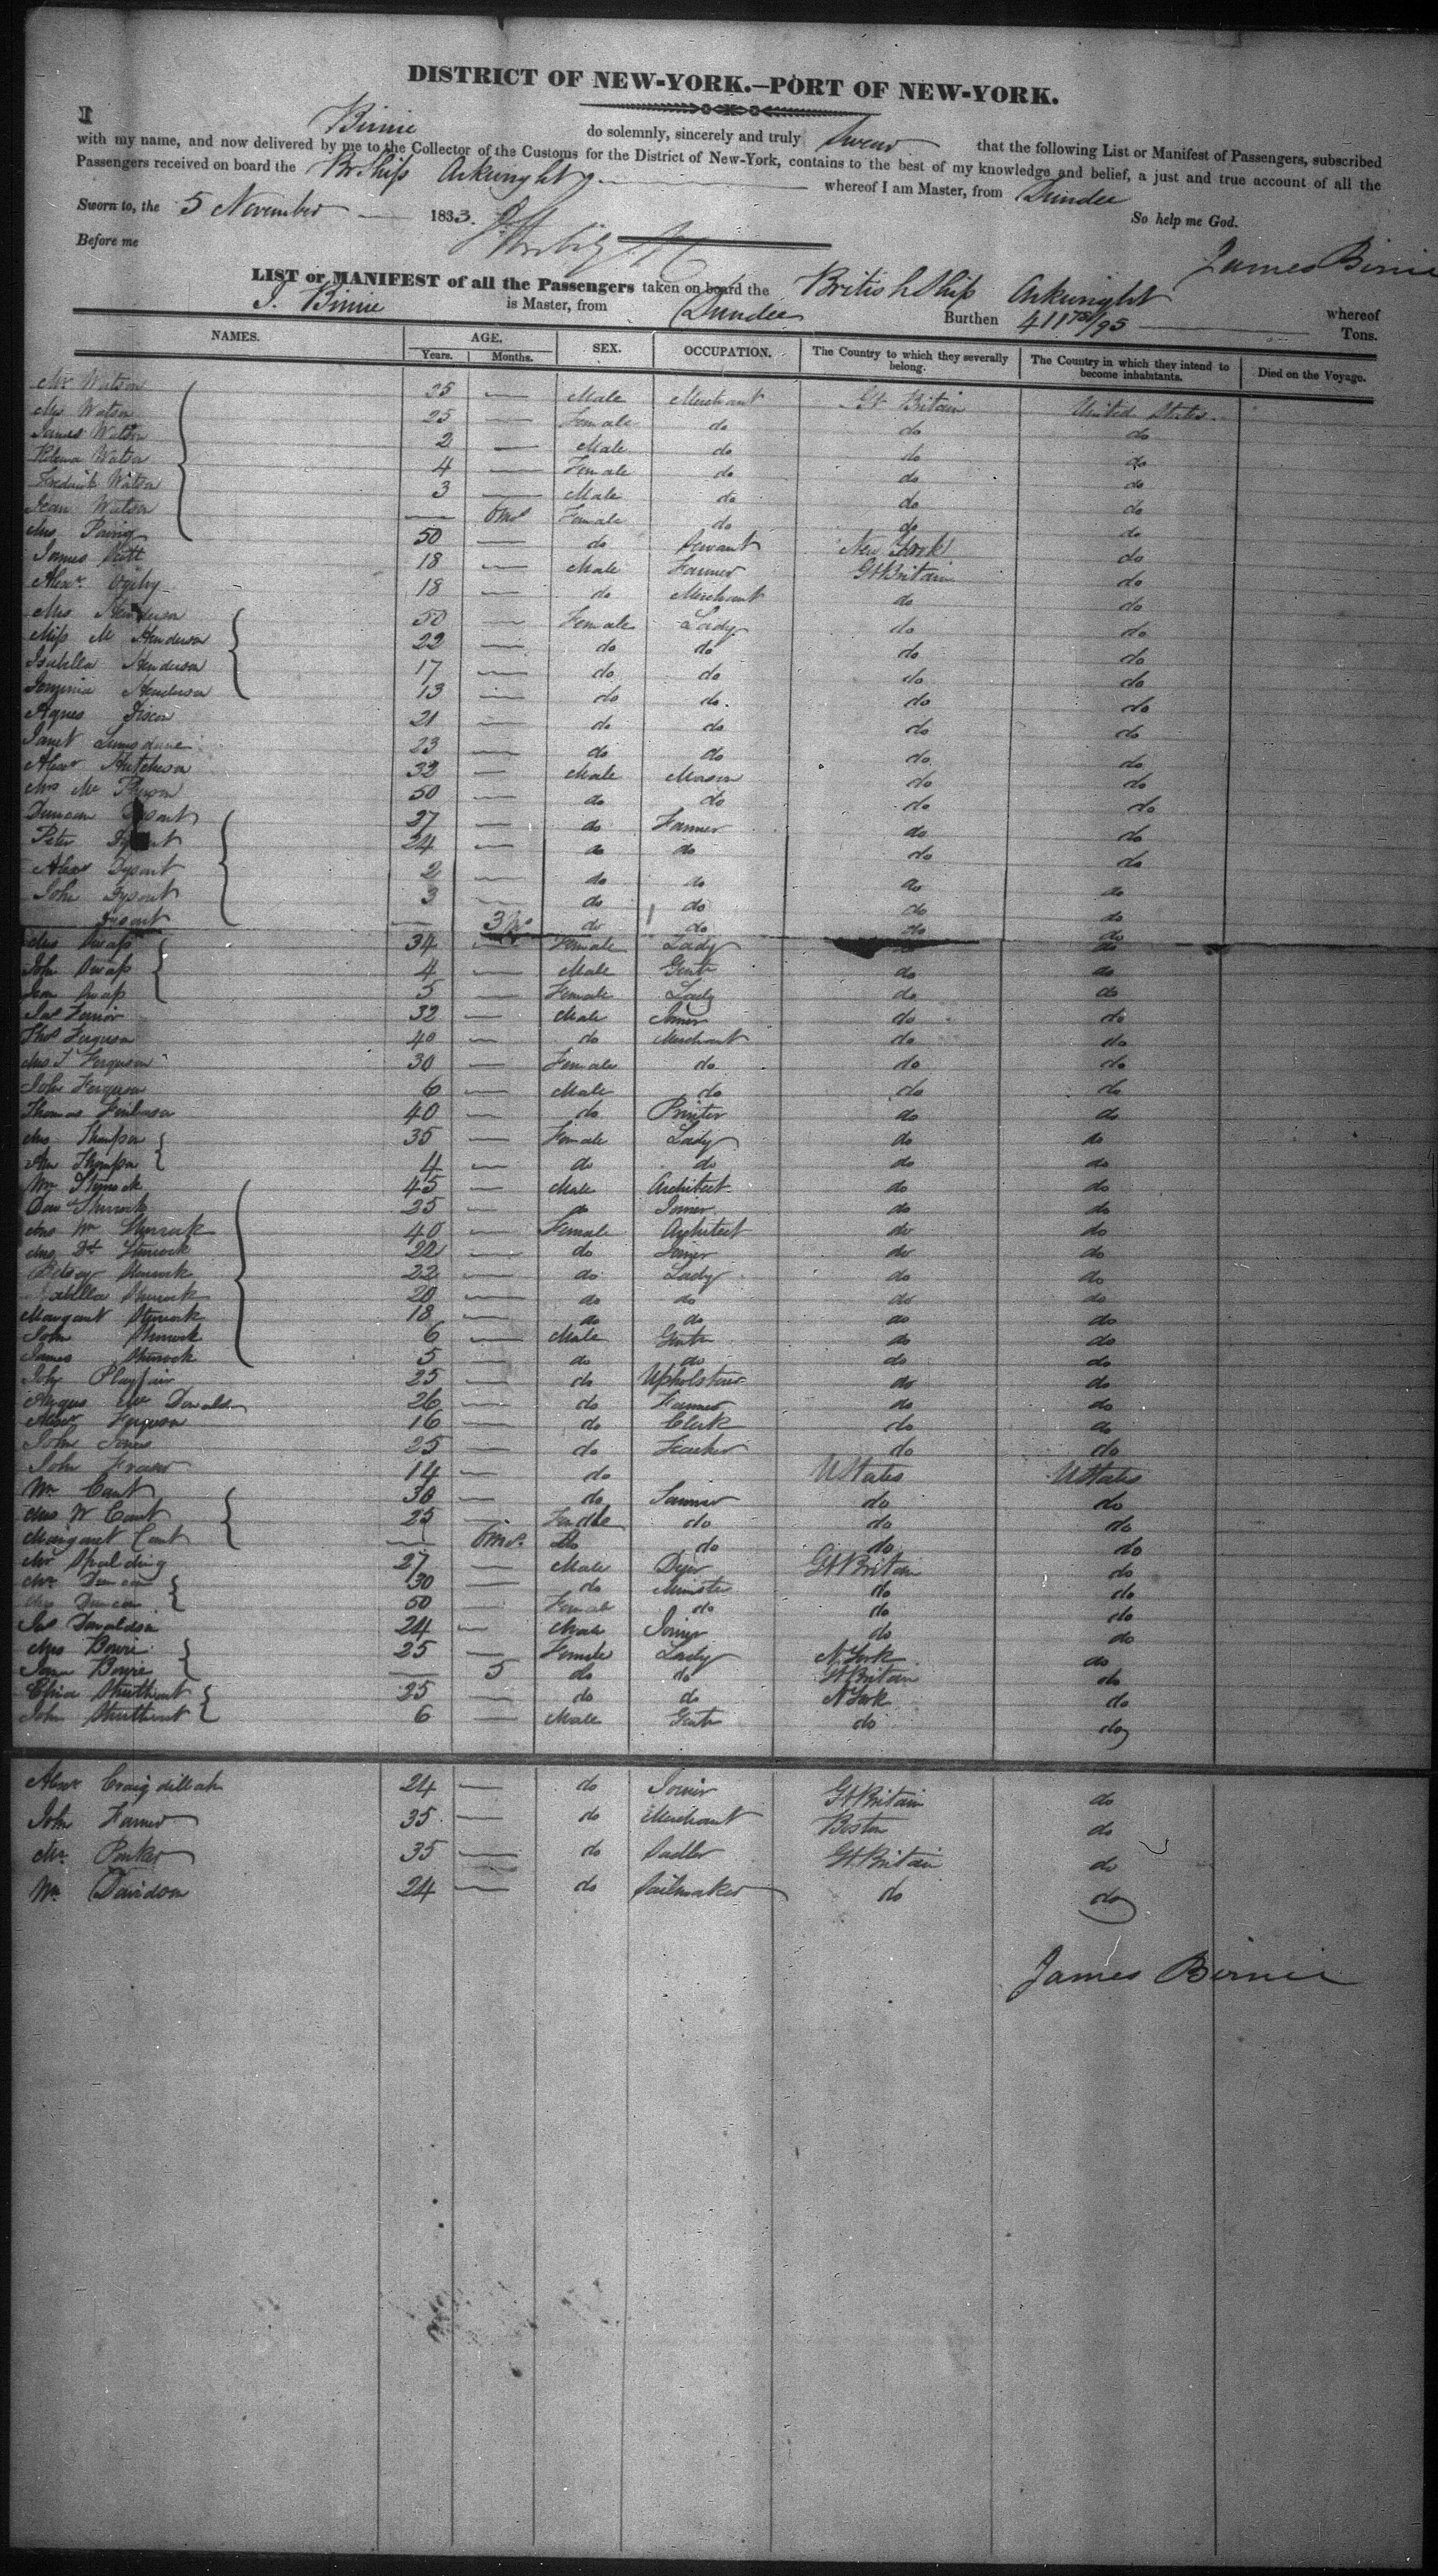 DISTRICT OF NEW-YORK.—PORT OF NEW-YORK.
I Birnie do solemnly, sincerely and truly Swear that the following List or Manifest of Passengers, subscribed
with my name, and now delivered by me to the Collector of the Customs for the District of New-York, contains to the best of my knowledge and belief, a just and true account of all the
Passengers received on board the Br Ship Arkwright whereof I am Master, from Dundee
Sworn to, the 5 November 1833. So help me God.
Before me James Birnie
LIST or MANIFEST of all the Passengers taken on board the British Ship Arkwright whereof
J. Birnie is Master, from Dundee Burthen 411 75/95 Tons.
NAMES. AGE. Years. Months. SEX. OCCUPATION. The Country to which they severally belong. The Country in which they intend to become inhabitants. Died on the Voyage.
Mr Watson 35 — Male Merchant Gt Britain United States
Mrs Watson 25 — Female do do do
James Watson 2 — Male do do do
Watson 4 — Female do do do
Frederick Watson 3 — Male do do do
Jean Watson — 6 mos Female do do do
Mrs 50 — do Servant New York do
James Scott 18 — Male Farmer Gt Britain do
Alexr Ogilvy 18 — do Merchant do do
Mrs Henderson 50 — Female Lady do do
Miss M Henderson 22 — do do do do
Isabella Henderson 17 — do do do do
Henderson 13 — do do. do do
Agnes 21 — do do do do
Janet Lumsdane 23 — do do do do
Alexr Hutcheson 32 — Male Mason do do
Mrs 50 — do do do do
Duncan 27 — do Farmer do do
Peter 24 — do do do do
Alexr Dysart 2 — do do do do
John Dysart 3 — do do do do
— 3 do do do do
Mrs 34 — Female Lady do do
John 4 — Male Gentn do do
Jean 5 — Female Lady do do
Jas 32 — Male Joiner do do
Thos Ferguson 40 — do Merchant do do
Mrs T Ferguson 30 — Female do do do
John Ferguson 6 — Male do do do
Thomas 40 — do Printer do do
Mrs Thompson 35 — Female Lady do do
Ann Thompson 4 — do do do do
Wm Sturrock 45 — Male Architect do do
Sturrock 25 — do Joiner do do
Mrs Wm Sturrock 40 — Female Architect do do
Mrs Dd Sturrock 22 — do Joiner do do
Betsey Sturrock 22 — do Lady do do
Isabella Sturrock 20 — do do do do
Margaret Sturrock 18 — do do do do
John Sturrock 6 — Male Gentn do do
James Sturrock 5 — do do do do
John Playfair 25 — do Upholsterer do do
Angus Mc Donald 26 — do Farmer do do
Alexr Ferguson 16 — do Clerk do do
John Jones 25 — do do do
John Fraser 14 — do U States U States
Wm Cant 30 — do do do
Mrs W Cant 25 — Female do do do
Margaret Cant — 6 mos. Do do do do
Mr Spalding 27 — Male Dyer Gt Britain do
Mr Duncan 30 — do Minister do do
Mrs Duncan 50 — Female do do do
Jas Donaldson 24 — Male Joiner do do
Mrs Bowie 25 — Female Lady N York do
Jane Bowie — 5 do do Gt Britain do
Struthers 25 — do do N York do
John 6 — Male Gentn do do
Alexr 24 — do Joiner Gt Britain do
John Farmer 35 — do Merchant Boston do
Mr. Parker 35 — do Sadler Gt Britain do
Wm Davidson 24 — do Sailmaker do do
James Birnie